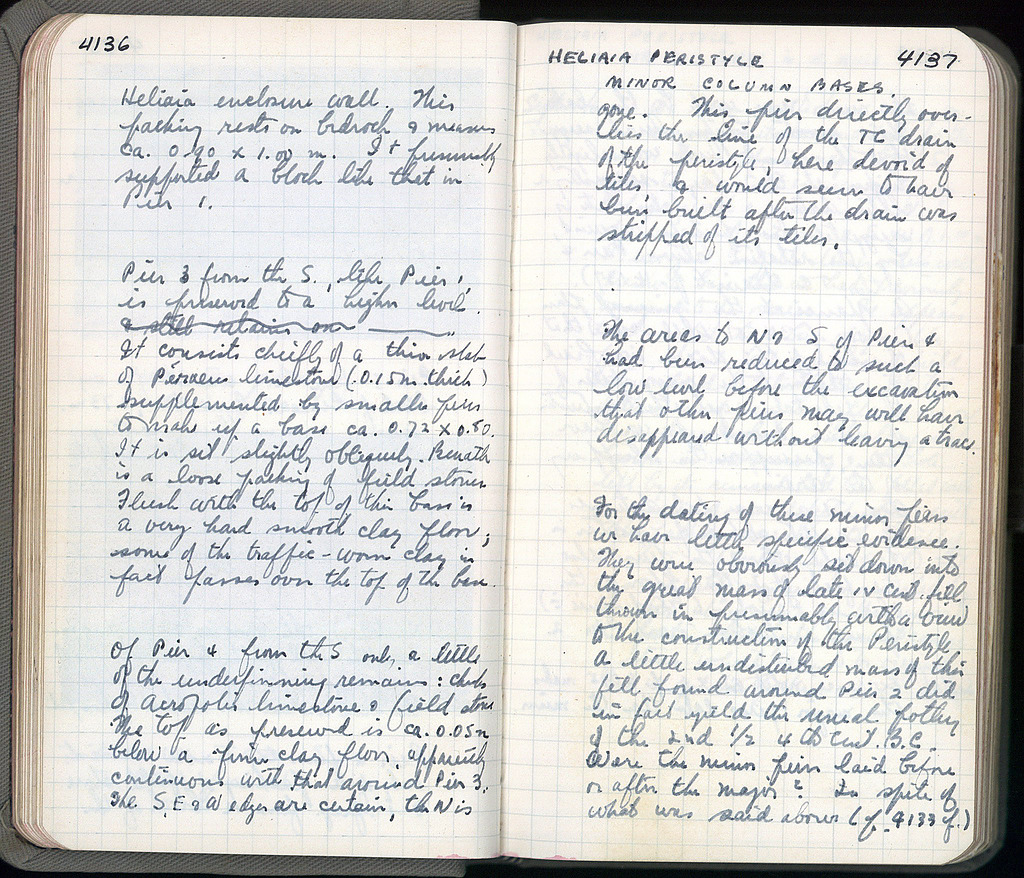 4136
Heliaia enclosure wall. This
packing rests on bedrock & measures
ca. 0.90 x 1.00 m. It presumably
supported a block like that in
Pier 1.
Pier 3 from the S., like Pier 1,
is preserved to a higher level.
& still retains on
It consists chiefly of a thin slab
of Peiraeus limestone (.0.15m. thick)
supplemented by smaller piers
to make up a base ca. 0.72 x 0.80.
It is set slightly obliquely. Beneath
is a loose packing of field stones
Flush with the top of this base is
a very hard smooth clay floor;
some of the traffic-worn clay in
fact passes over the top of the base.
Of Pier 4 from the S only a little
of the underpinning remains: chunks
of Acropolis limestone & field stones
The top as preserved is ca. 0.05m
below a firm clay floor, apparently
continuous with that around Pier 3.
The S, E & W edges are certain, the N is
HELIAIA PERISTYLE 4137
MINOR COLUMN BASES.
gone. This pier directly over-
lies the line of the TC drain
of the peristyle, here devoid of
tiles, & would seem to have
been built after the drain was
stripped of its tiles.
The areas to N & S of Pier 4
had been reduced to such a
low level before the excavation
that other piers may well have
disappeared without leaving a trace.
For the dating of these minor piers
we have little specific evidence.
They were obviously set down into
the great mass of late IV cent. fill
thrown in presumably with a view
to the construction of the Peristyle.
A little undisturbed mass of this
fill found around Pier 2 did
in fact yield the usual pottery
of the 2nd 1/2 4th cent. B.C.
Were the minor piers laid before
or after the major? In spite of
what was said above (cf. 4133 f.)